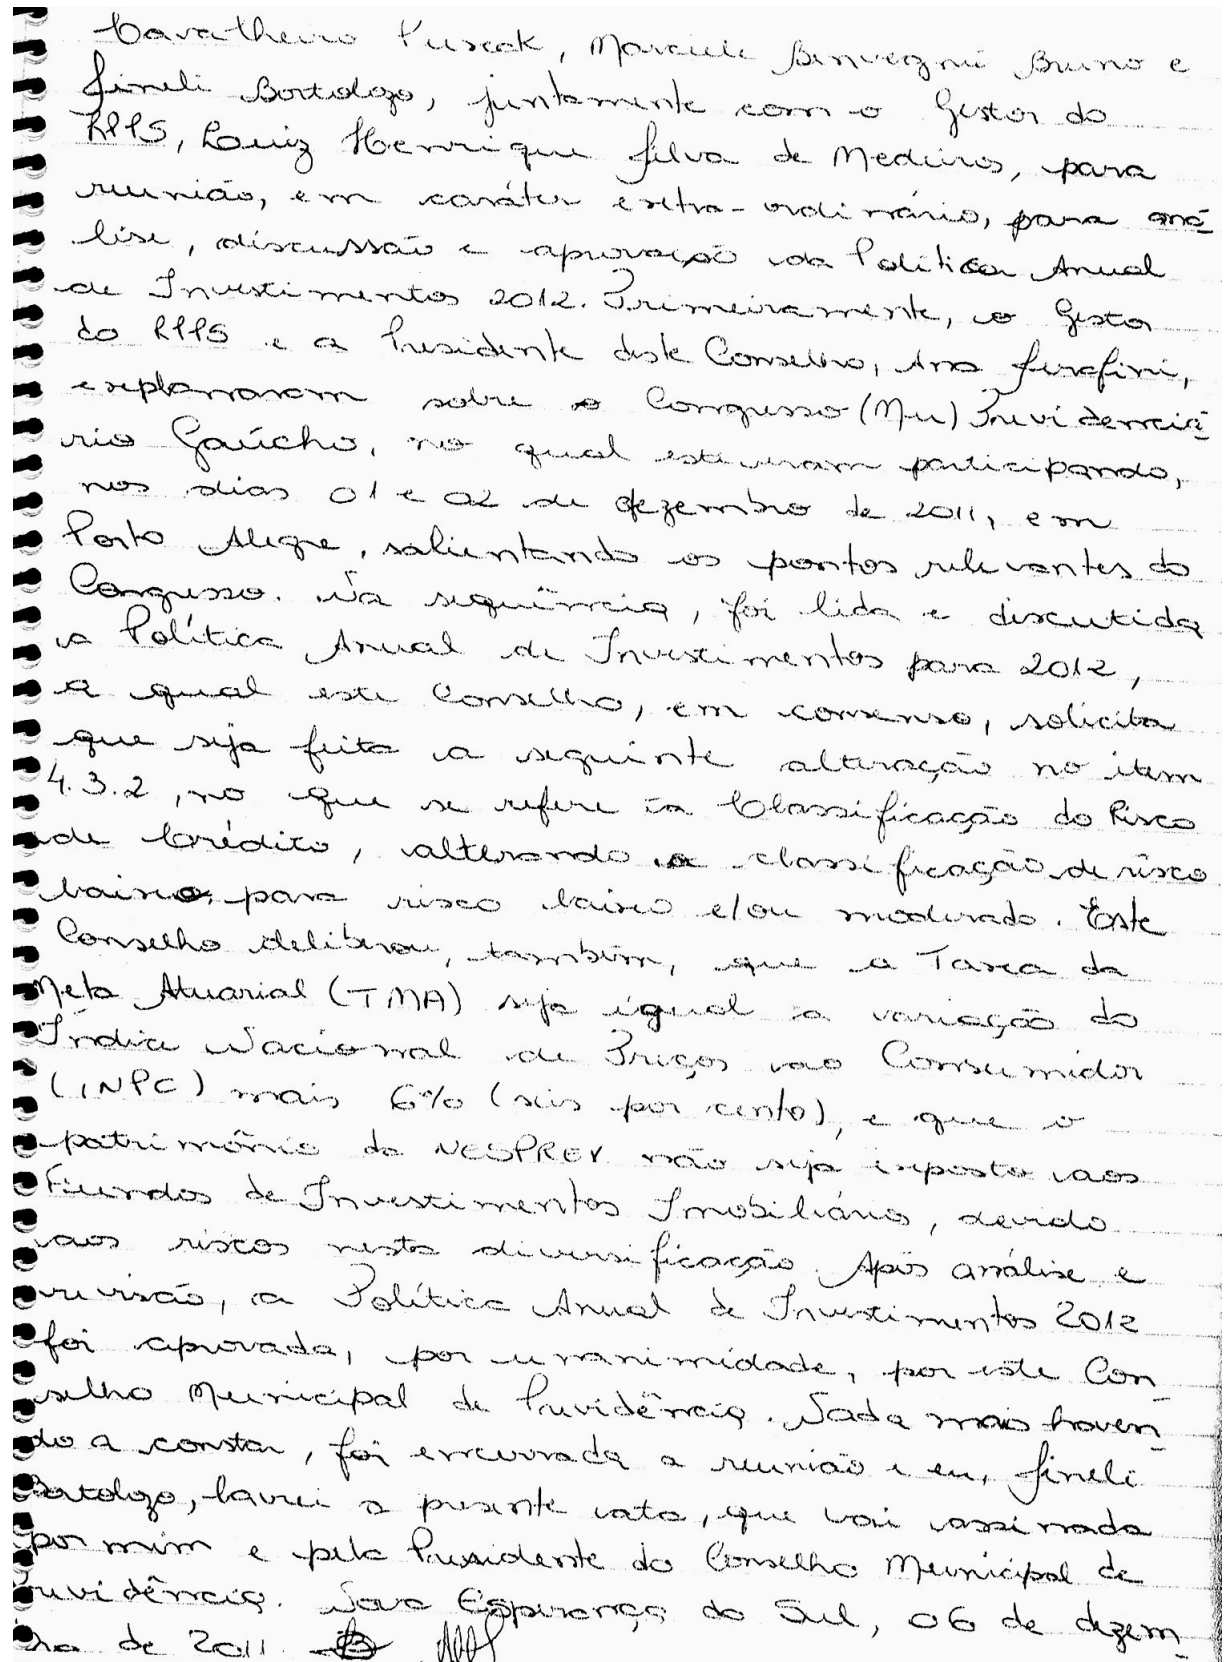 Cavalheiro Puscak, Marciele Benvegnú Bruno e
Sineli Bortolozo, juntamente com o Gestor do
RPPS, Luiz Henrique Silva de Medeiros, para
reunião, em caráter extra-ordinário, para aná-
lise, discussão e aprovação da Política Anual
de Investimentos 2012. Primeiramente, o Gestor
do RPPS e a Presidente deste Conselho, Ana Serafini,
explanaram sobre o Congresso (Meu) Previdenciá-
rio Gaúcho, no qual estiveram participando,
nos dias 01 e 02 de dezembro de 2011, em
Porto Alegre, salientando os pontos relevantes do
Congresso. Na sequência, foi lida e discutida
a Política Anual de Investimentos para 2012,
a qual este Conselho, em consenso, solicita
que seja feita a seguinte alteração no item
4.3.2, no que se refere a Classificação do Risco
de Crédito, alterando a classificação de risco
baixo, para risco baixo e/ou moderado. Este
Conselho deliberou, também, que a Taxa da
Meta Atuarial (TMA) seja igual a variação do
Índice Nacional de Preços ao Consumidor
(INPC) mais 6% (seis por cento), e que o
patrimônio do NESPREV não seja exposto aos
Fundos de Investimentos Imobiliários, devido
aos riscos nesta diversificação. Após análise e
revisão, a Política Anual de Investimentos 2012
foi aprovada, por unanimidade, por este Con-
selho Municipal de Previdência. Nada mais haven-
do a constar, foi encerrada a reunião e eu, Sineli
Bortolozo, lavrei a presente ata, que vai assinada
por mim e pela Presidente do Conselho Municipal de
Previdência. Nova Esperança do Sul, 06 de dezem-
bro de 2011.